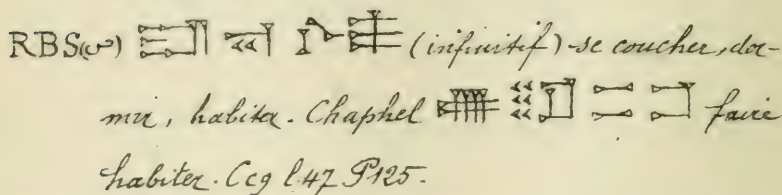 RBS(ص) (infinitif) se coucher, dor-
mir, habiter. Chaphel faire
habiter. Ccg l.47 P125.